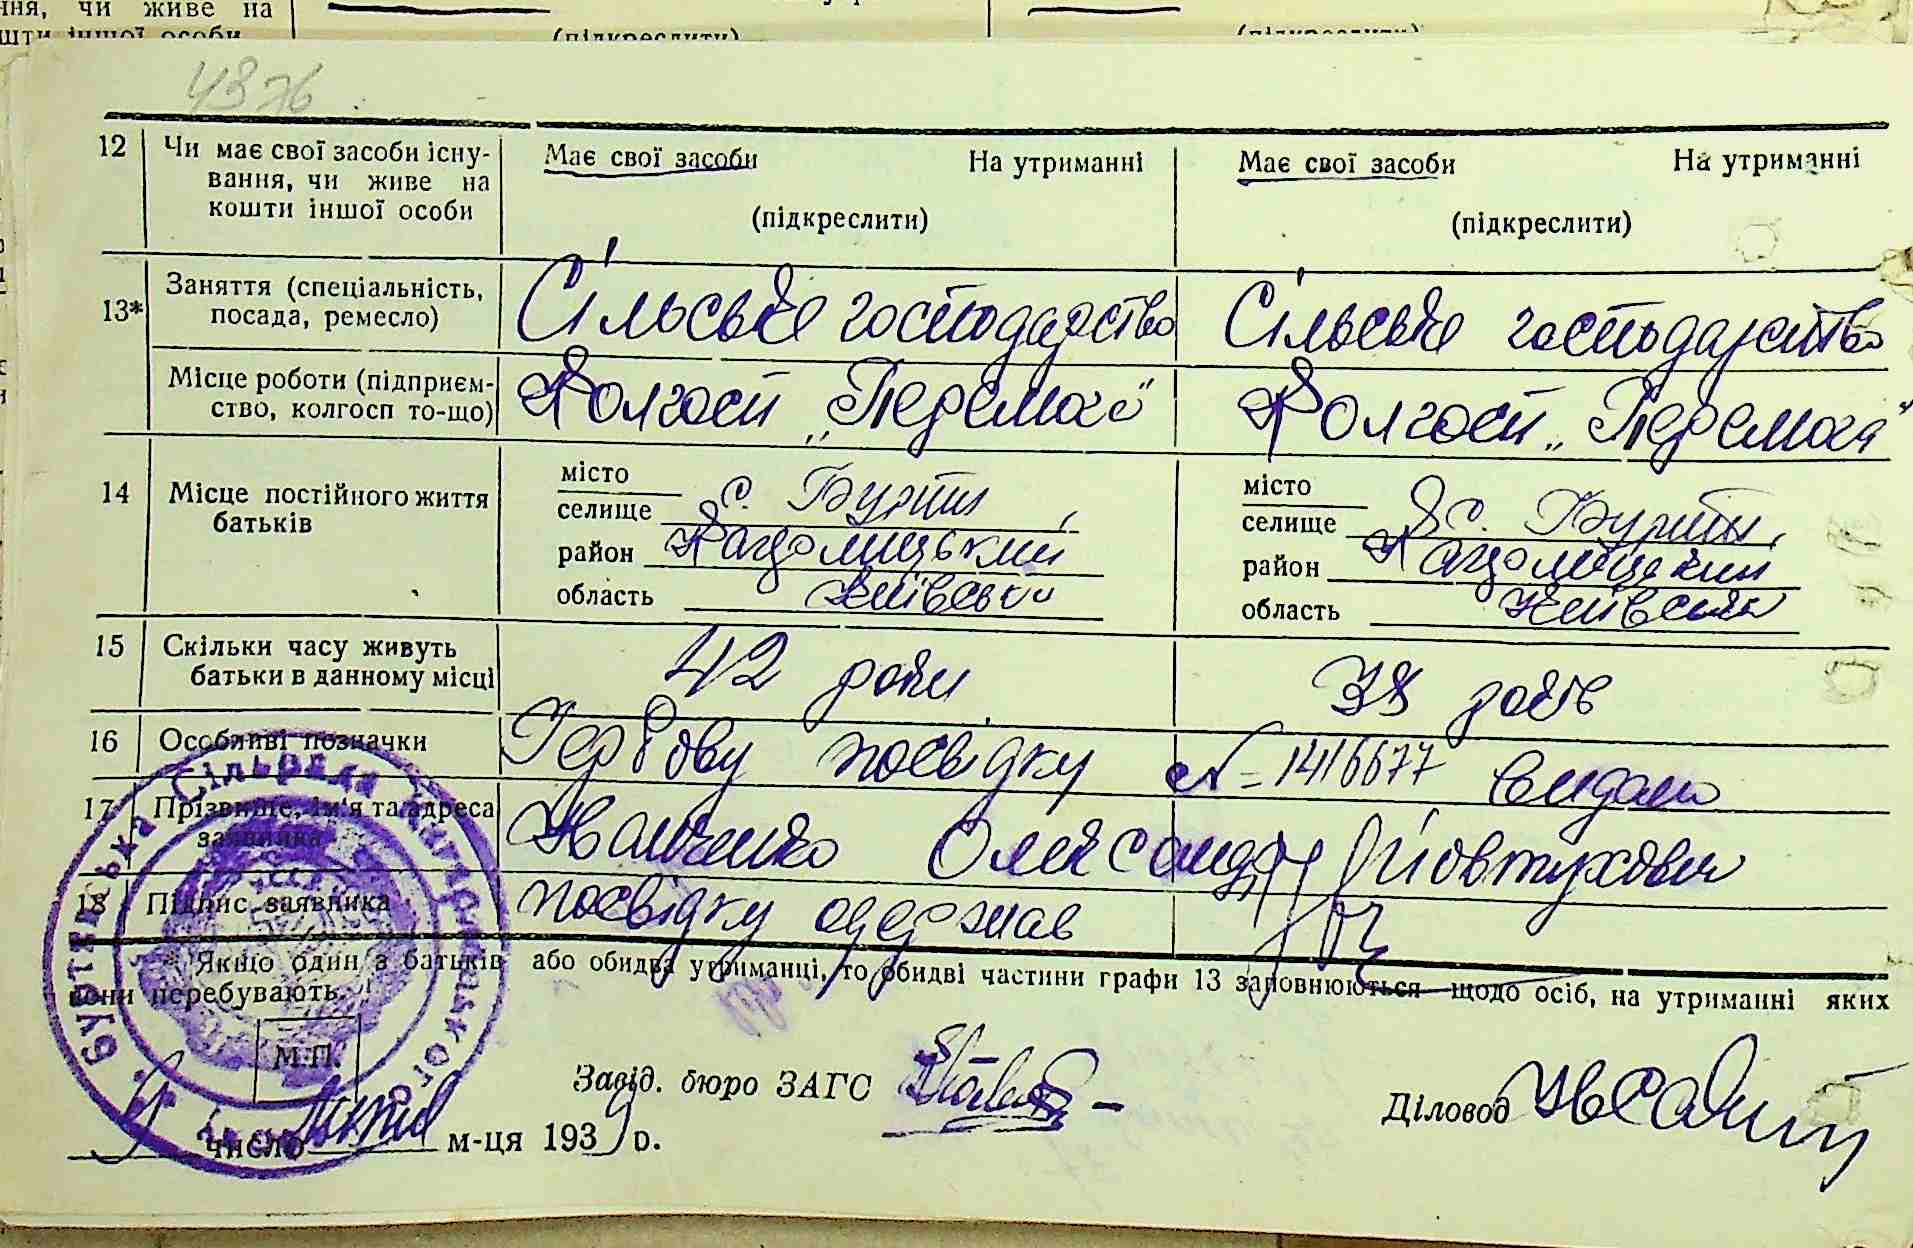 ння, чи живе на
шти іншої особи
(підкреслити)
(підкреслити)
4376
12 Чи має свої засоби існу-
вання, чи живе на
кошти іншої особи
Має свої засоби На утриманні
(підкреслити)
Має свої засоби На утриманні
(підкреслити)
13* Заняття (спеціальність,
посада, ремесло)
Сільське господарство
Сільське господарство
Місце роботи (підприєм-
ство, колгосп то-що)
Колгосп „Перемога"
Колгосп „Перемога"
14 Місце постійного життя
батьків
місто
селище с. Бурти,
район Кагарлицький
область Київська
місто
селище с. Бурти,
район Кагарлицький
область Київська
15 Скільки часу живуть
батьки в данному місці
42 роки
38 років
16 Особливі позначки
Гербову посвідку № 1416677 видано
17 Прізвище, ім'я та адреса
заявника
Іванченко Олександр Йовтухович
18 Підпис заявника
посвідку одержав
* Якщо один з батьків або обидва утриманці, то обидві частини графи 13 заповнюються щодо осіб, на утриманні яких
вони перебувають.
М.П.
Завід. бюро ЗАГС
Діловод
9 число м-ця 1939 р.
Буртівська Сільрада Кагарлицького